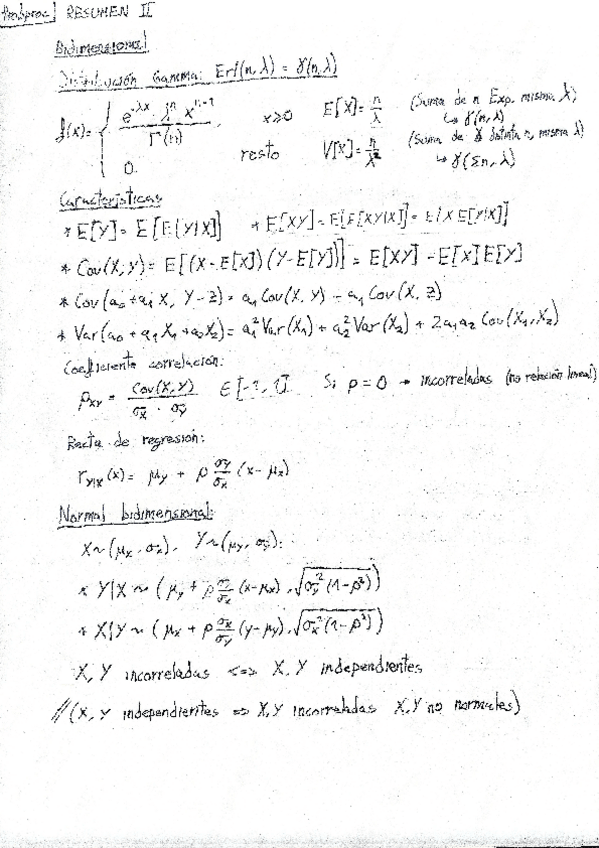 Probproc RESUMEN II
Bidimensional
Distribución Gamma: Erl(n, λ) = γ(n, λ)
f(x) = { e^(-λx) λ^n x^(n-1) / Γ(n), x≥0 E[X] = n/λ (Suma de n Exp. misma λ) ↳ γ(n, λ)
0 resto V[X] = n/λ² (Suma de γ distinta n, misma λ) ↳ γ(Σn, λ)
Características
* E[Y] = E[E[Y|X]] * E[XY] = E[E[XY|X]] = E[X E[Y|X]]
* Cov(X, Y) = E[(X-E[X])(Y-E[Y])] = E[XY] - E[X]E[Y]
* Cov(a₀+a₁X, Y-Z) = a₁Cov(X, Y) - a₁Cov(X, Z)
* Var(a₀ + a₁X₁ + a₂X₂) = a₁²Var(X₁) + a₂²Var(X₂) + 2a₁a₂Cov(X₁, X₂)
Coeficiente correlación:
ρxy = Cov(X, Y) / (σx · σy) ∈ [-1, 1] Si ρ = 0 → incorreladas (no relación lineal)
Recta de regresión:
r_Y|X(x) = μy + ρ σy/σx (x-μx)
Normal bidimensional:
X~(μx, σx), Y~(μy, σy):
* Y|X ~ (μy + ρ σy/σx (x-μx), √(σy²(1-ρ²)))
* X|Y ~ (μx + ρ σx/σy (y-μy), √(σx²(1-ρ²)))
X, Y incorreladas <=> X, Y independientes
//(X, Y independientes => X, Y incorreladas X, Y no normales)